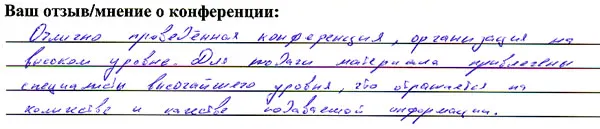 Ваш отзыв/мнение о конференции:
Отлично проведённая конференция, организация на
высоком уровне. Для подачи материала привлечены
специалисты высочайшего уровня, что отражается на
количестве и качестве подаваемой информации.